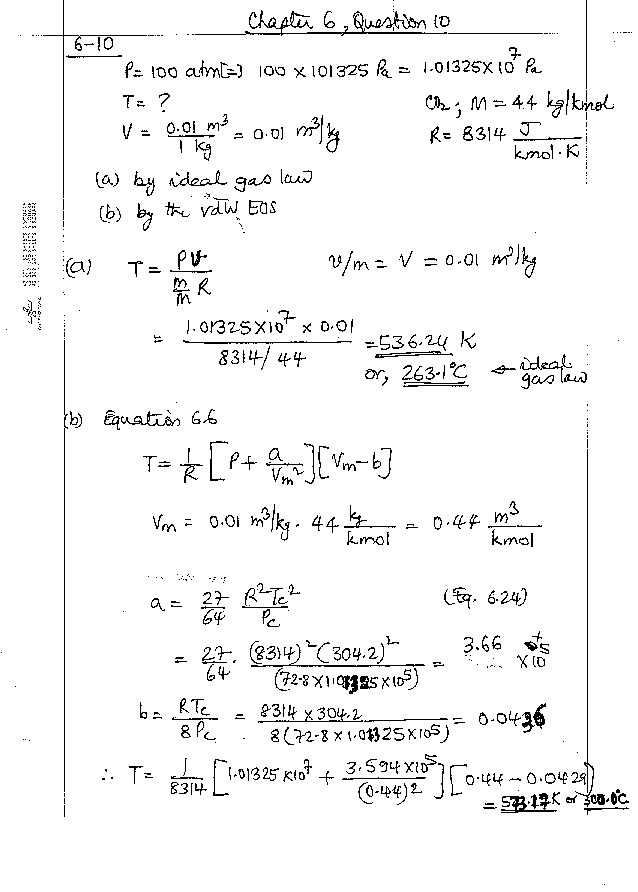 Chapter 6, Question 10
6-10
P = 100 atm (=) 100 × 101325 Pa = 1.01325×10^7 Pa
T = ? CO2; M = 44 kg/kmol
V = 0.01 m^3 / 1 kg = 0.01 m^3/kg R = 8314 J / kmol·K
(a) by ideal gas law
(b) by the vdW EOS
(a) T = PV / (m/M R) V/m = V = 0.01 m^3/kg
= 1.01325×10^7 × 0.01 / 8314/44 = 536.24 K
or, 263.1°C ← ideal gas law
(b) Equation 6.6
T = 1/R [P + a/Vm^2][Vm - b]
Vm = 0.01 m^3/kg · 44 kg/kmol = 0.44 m^3/kmol
a = 27/64 R^2Tc^2/Pc (Eq. 6.24)
= 27/64 · (8314)^2 (304.2)^2 / (72.8×1.01325×10^5) = 3.66 ×10^+5
b = RTc/8Pc = 8314 × 304.2 / 8(72.8×1.01325×10^5) = 0.0436
∴ T = 1/8314 [1.01325×10^7 + 3.594×10^5/(0.44)^2][0.44 - 0.0429]
= K or °C